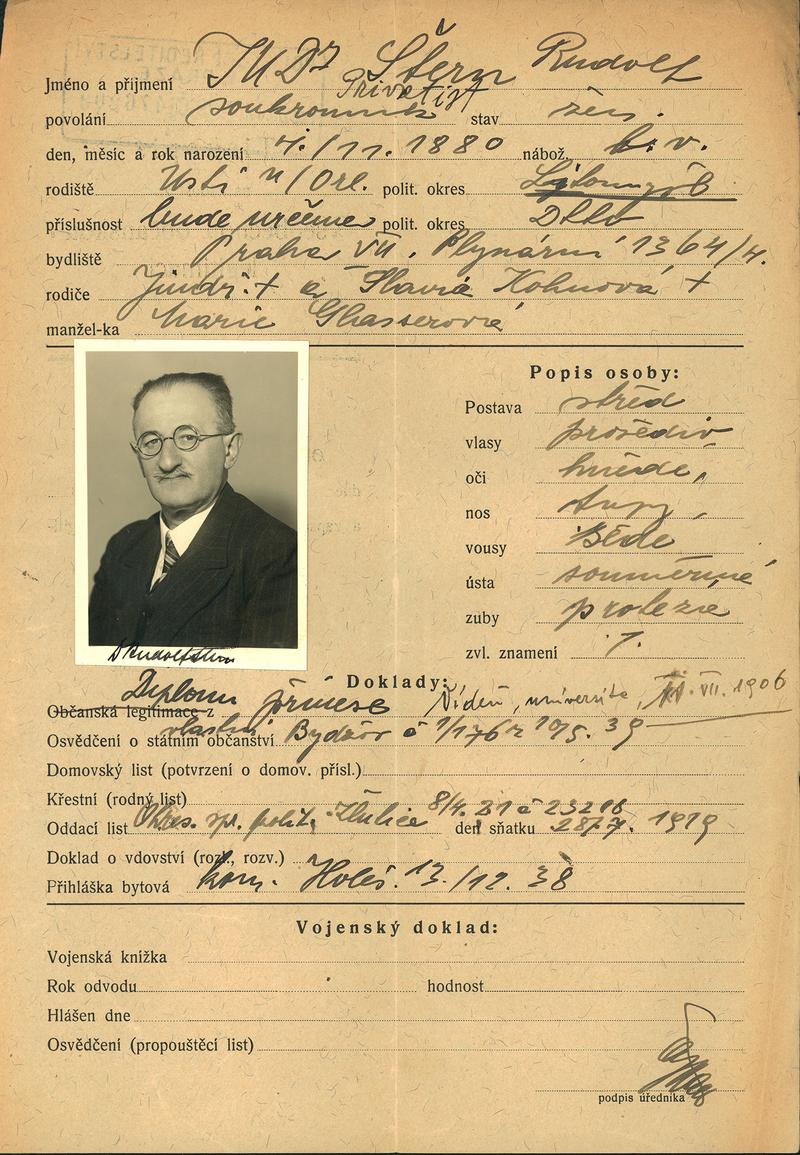 Jméno a přijmení JUDr Štern Rudolf
Privatist
povolání soukromník stav žen.
den, měsíc a rok narození 4./11. 1880 nábož. b. v.
rodiště Ustí n/Orl. polit. okres
příslušnost bude určena polit. okres Dtto
bydliště Praha VII. Plynární 1364/4.
rodiče Jindř. + a Slavia Kohnová +
manžel-ka Marie Glasserová
Popis osoby:
Postava střed
vlasy prošediv.
oči hnědé,
nos tupý,
vousy šedé
ústa souměrné
zuby proteze
zvl. znamení 7.
Dr Rudolf Stern
Doklady:
Diplom přinese Vídeň, universita, VII. 1906
Občanská legitimace z
vlastní
Osvědčení o státním občanství Bydžov č 1/176 z 10/5. 39
Domovský list (potvrzení o domov. přísl.)
Křestní (rodný list) 8/4. 21 č 23216
Oddací list Okres. spr. polit. den sňatku 28/7. 1919
Doklad o vdovství (rozl., rozv.)
Přihláška bytová kom. Holeš. 13./12. 38
Vojenský doklad:
Vojenská knížka
Rok odvodu hodnost
Hlášen dne
Osvědčení (propouštěcí list)
podpis úředníka